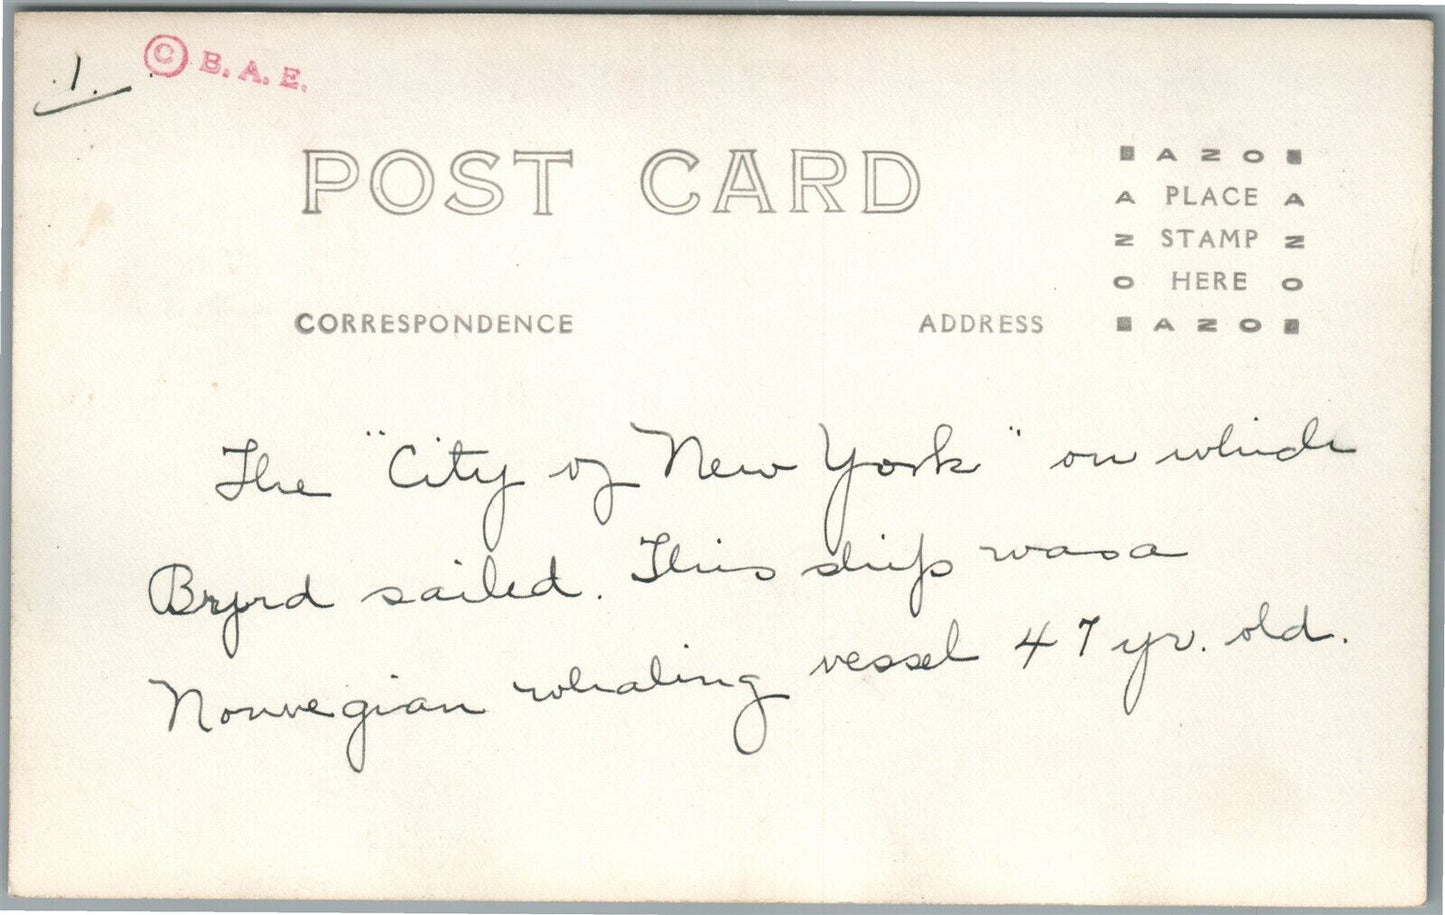 1.
© B. A. E.
POST CARD
AZO
A PLACE A
Z STAMP Z
O HERE O
AZO
CORRESPONDENCE ADDRESS
The "City of New York" on which
Byrd sailed. This ship was a
Norwegian whaling vessel 47 yr. old.